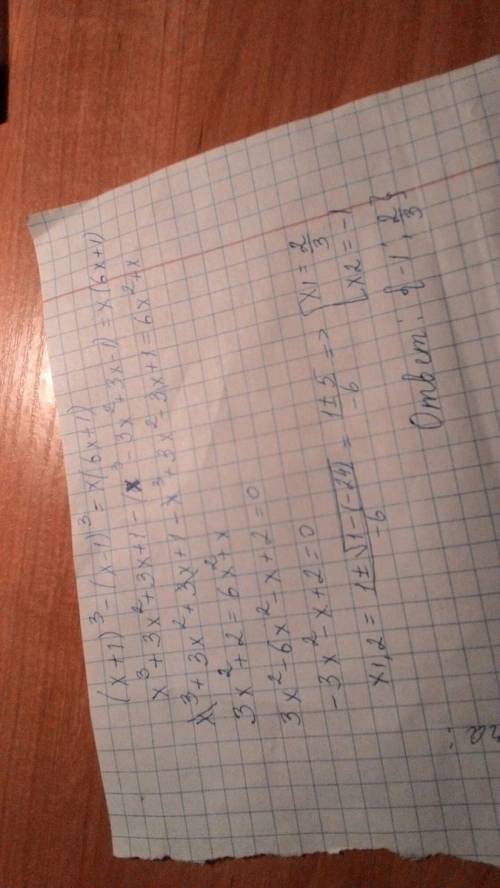 (x+1)³-(x-1)³=x(6x+1)
x³+3x²+3x+1-(x³-3x²+3x-1)=x(6x+1)
x³+3x²+3x+1-x³+3x²-3x+1=6x²+x
3x²+2=6x²+x
3x²-6x²-x+2=0
-3x²-x+2=0
x1,2=(1±√(1-(-24)))/-6=(1±5)/-6=>{x1=2/3
x2=-1
Ответ: {-1; 2/3}